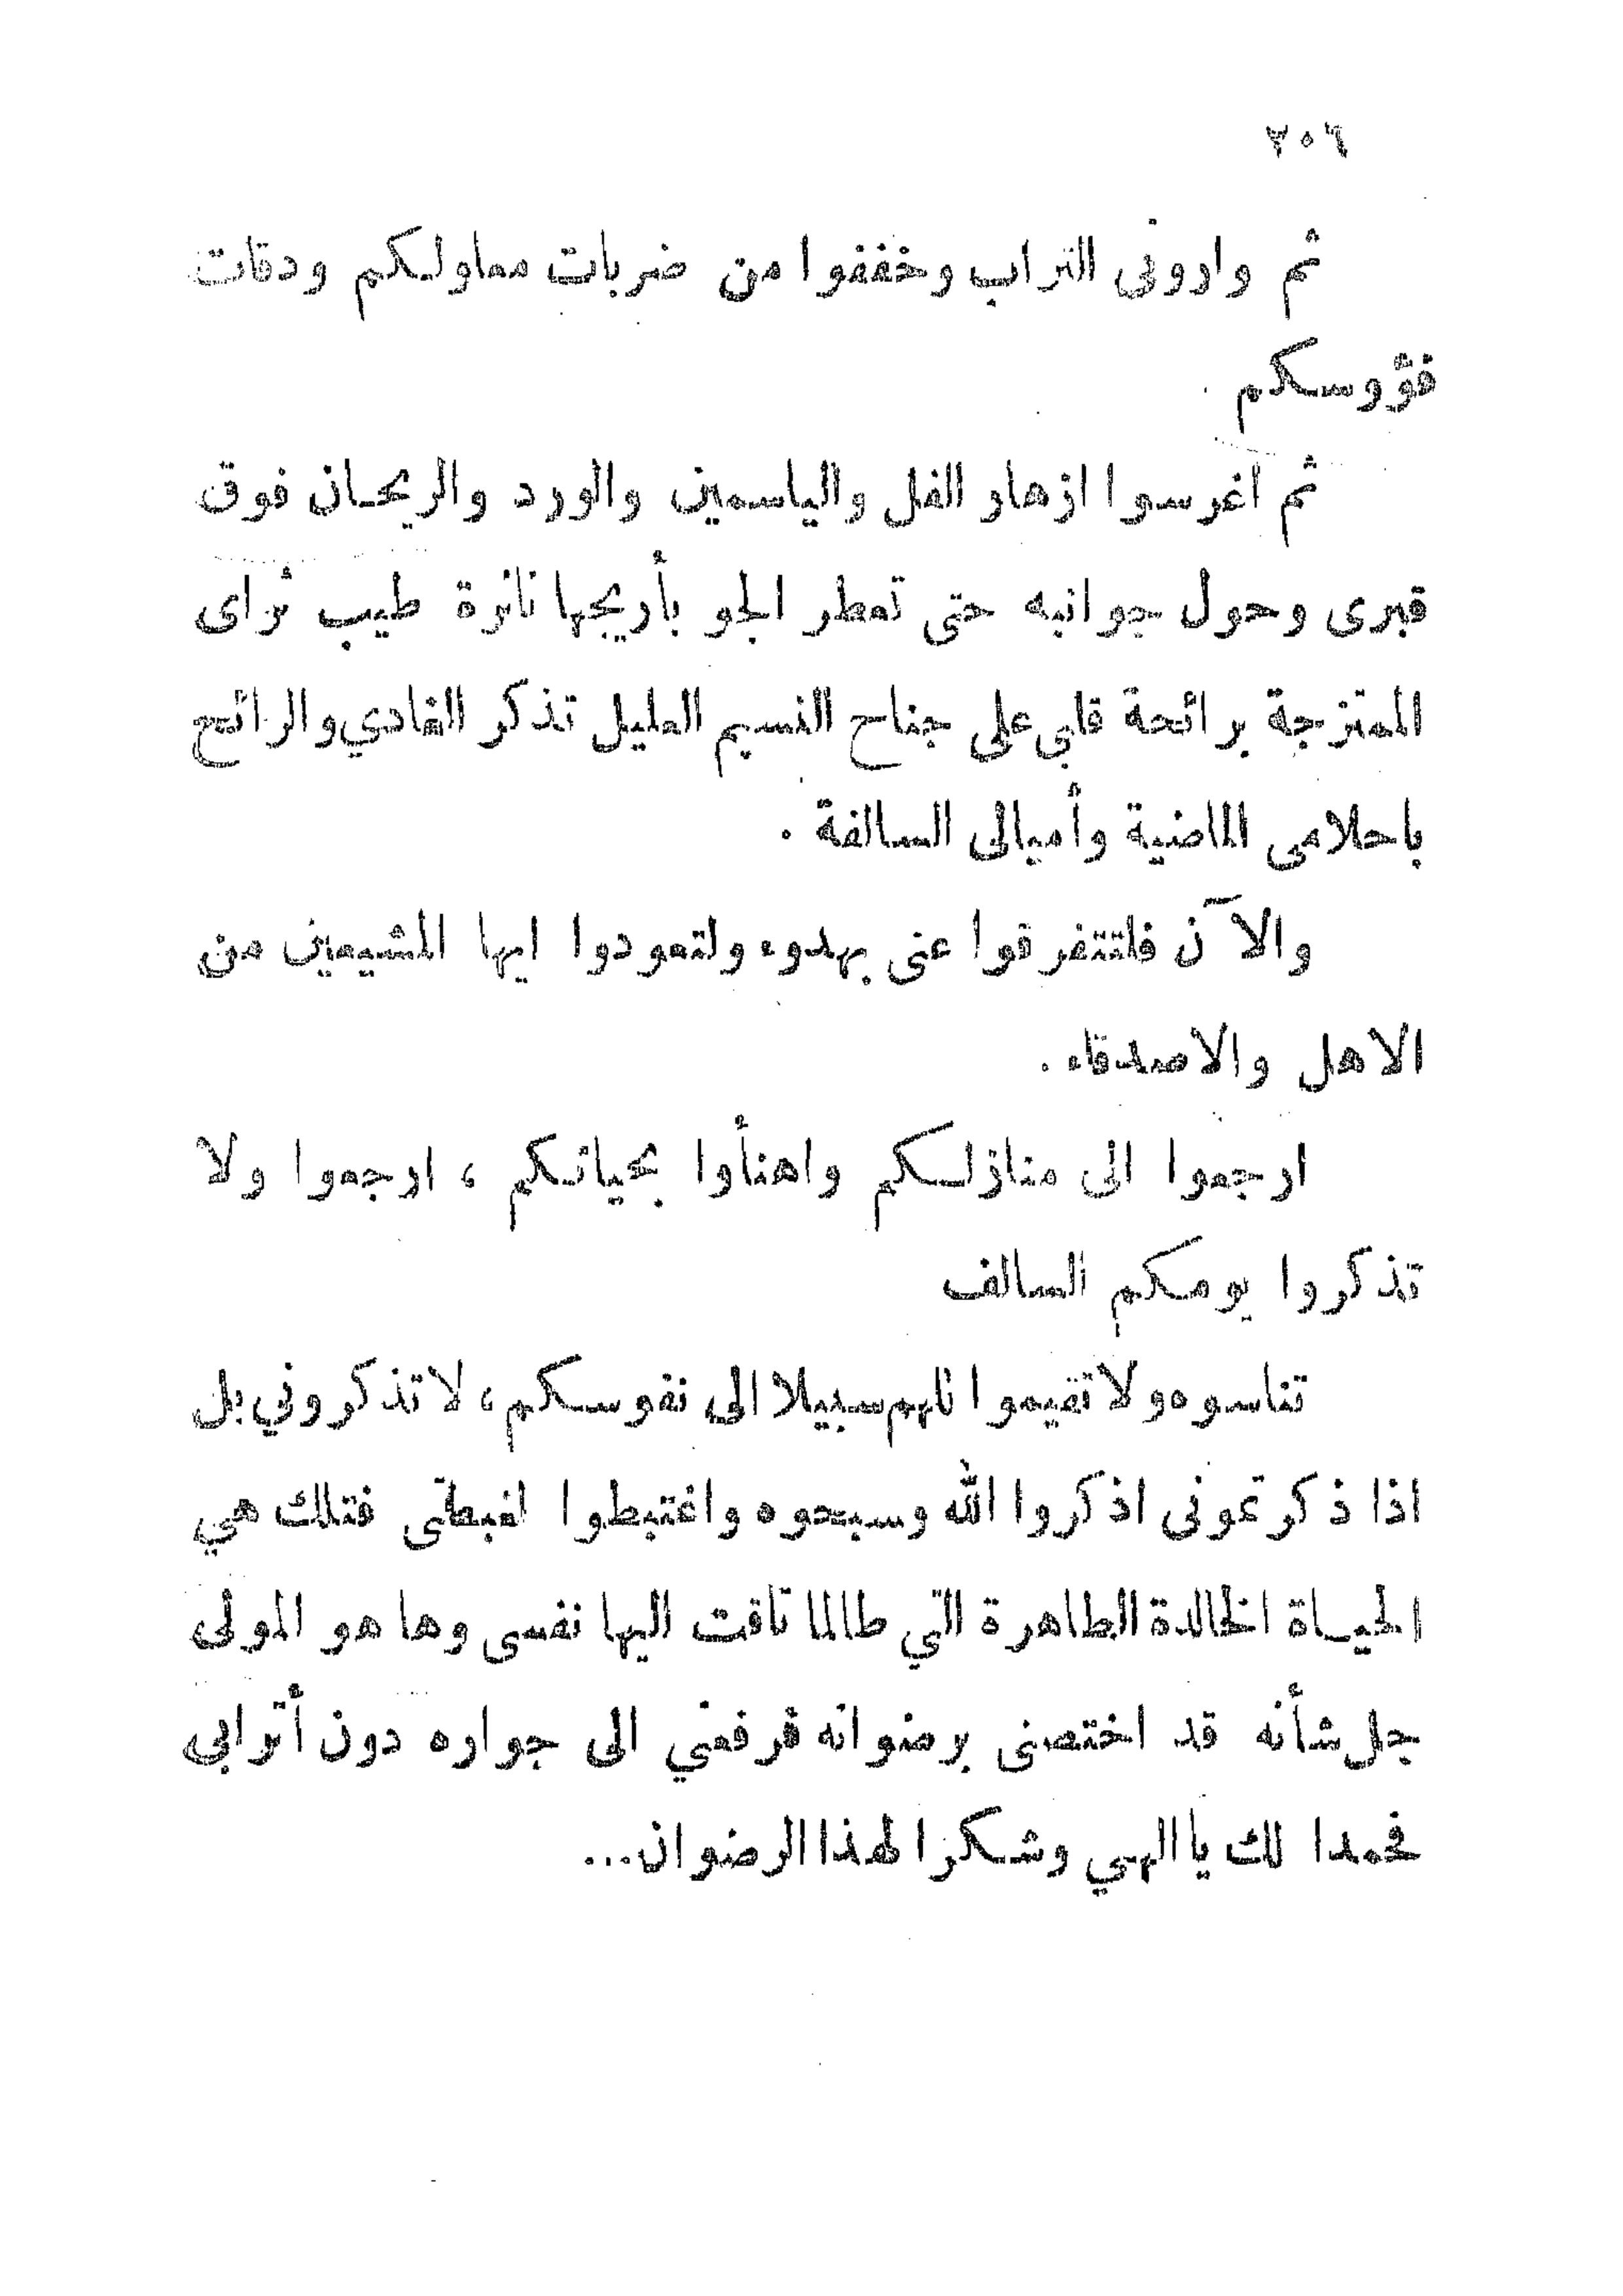 ٢٠٦
ثم وارونى التراب وخففوا من ضربات معاولكم ودقات
فؤوسكم .
ثم اغرسوا ازهار الفل والياسمين والورد والريحان فوق
قبرى وحول جوانبه حتى تعطر الجو بأريجها ناثرة طيب ثراى
الممتزجة برائحة قلبي على جناح النسيم العليل تذكر الغادي والرائح
باحلامى الماضية وأميالى السالفة .
والآن فلتتفرقوا عنى بهدوء ولتعودوا ايها المشيعين من
الاهل والاصدقاء .
ارجعوا الى منازلكم واهنأوا بحياتكم ، ارجعوا ولا
تذكروا يومكم السالف
تناسوه ولا تقيموا للهم سبيلا الى نفوسكم ، لا تذكروني بل
اذا ذكرتمونى اذكروا الله وسبحوه واغتبطوا لغبطتى فتلك هي
الحياة الخالدة الطاهرة التي طالما تاقت اليها نفسى وها هو المولى
جل شأنه قد اختصنى برضوانه فرفعني الى جواره دون أترابي
فحمدا لك يا الهي وشكرا لهذا الرضوان...